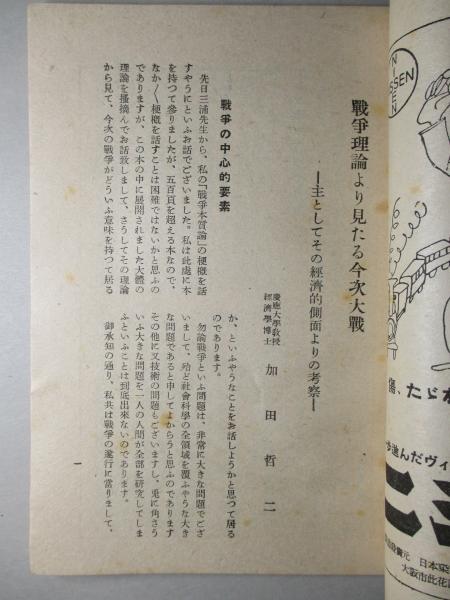 戰爭理論より見たる今次大戰
―主としてその經濟的側面よりの考察―
慶應大學教授
經濟學博士
加田哲二
戰爭の中心的要素
先日三浦先生から、私の『戰爭本質論』の梗槪を話
すやうにといふお話でございました。私は此處に本
を持つて參りましたが、五百頁を超える本なので、
なか〳〵梗槪を話すことは困難ではないかと思ふの
でありますが、この本の中に展開されました大體の
理論を搔摘んでお話致しまして、さうしてその理論
から見て、今次の戰爭がどういふ意味を持つて居る
か、といふやうなことをお話しようかと思つて居る
のであります。
勿論戰爭といふ問題は、非常に大きな問題でござ
いまして、殆ど社會科學の全領域を覆ふやうな大き
な問題であると申してよからうと思ふのであります
その他に又技術の問題もございますし、兎に角さう
いふ大きな問題を一人の人間が全部を硏究してしま
ふといふことは到底出來ないのであります。
御承知の通り、私共は戰爭の遂行に當りまして、
一
NISSEN
傷、たゞれ
步進んだヴィ
元 日本染
大阪市此花